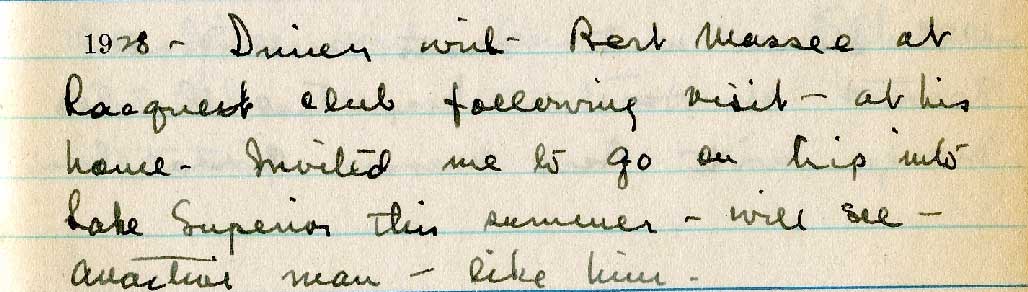 1928 - Dinner with Bert Massee at
Racquet club following visit - at his
home - Invited me to go on trip into
Lake Superior this summer - will see -
attractive man - like him.